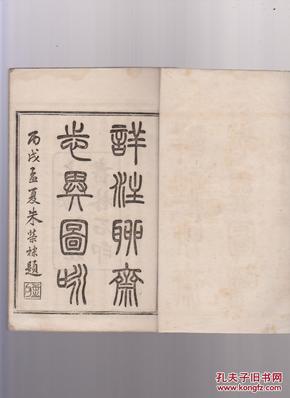 詳注聊齋
志異圖詠
丙戌孟夏朱榮棣題
孔夫子旧书网